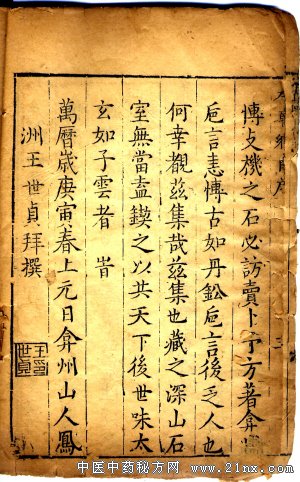 博支機之石必訪賣卜予方著弇州
卮言恚博古如丹鉛卮言後乏人也
何幸覩茲集哉茲集也藏之深山石
室無當盍鍥之以共天下後世味太
玄如子雲者 旹
萬曆歲庚寅春上元日弇州山人鳳
洲王世貞拜撰
王印世貞
中医中药秘方网 www.21nx.com